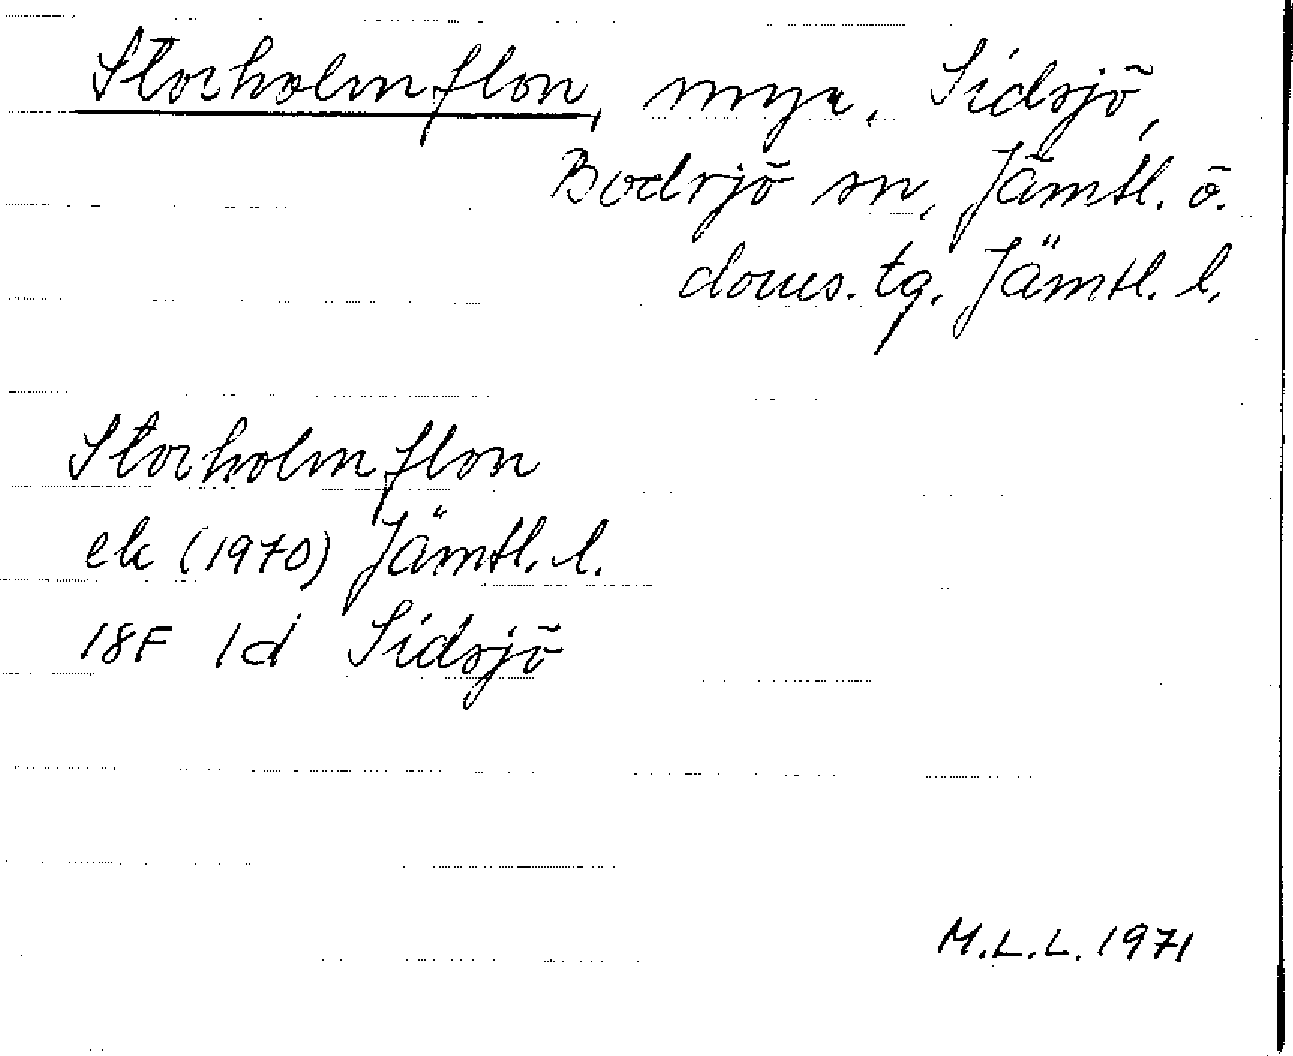 Storholmflon, myr, Sidsjö,
Bodsjö sn, Jämtl. ö.
doms. tg. Jämtl. l.
Storholmflon
ek (1970) Jämtl. l.
18F 1d Sidsjö
M.L.L. 1971